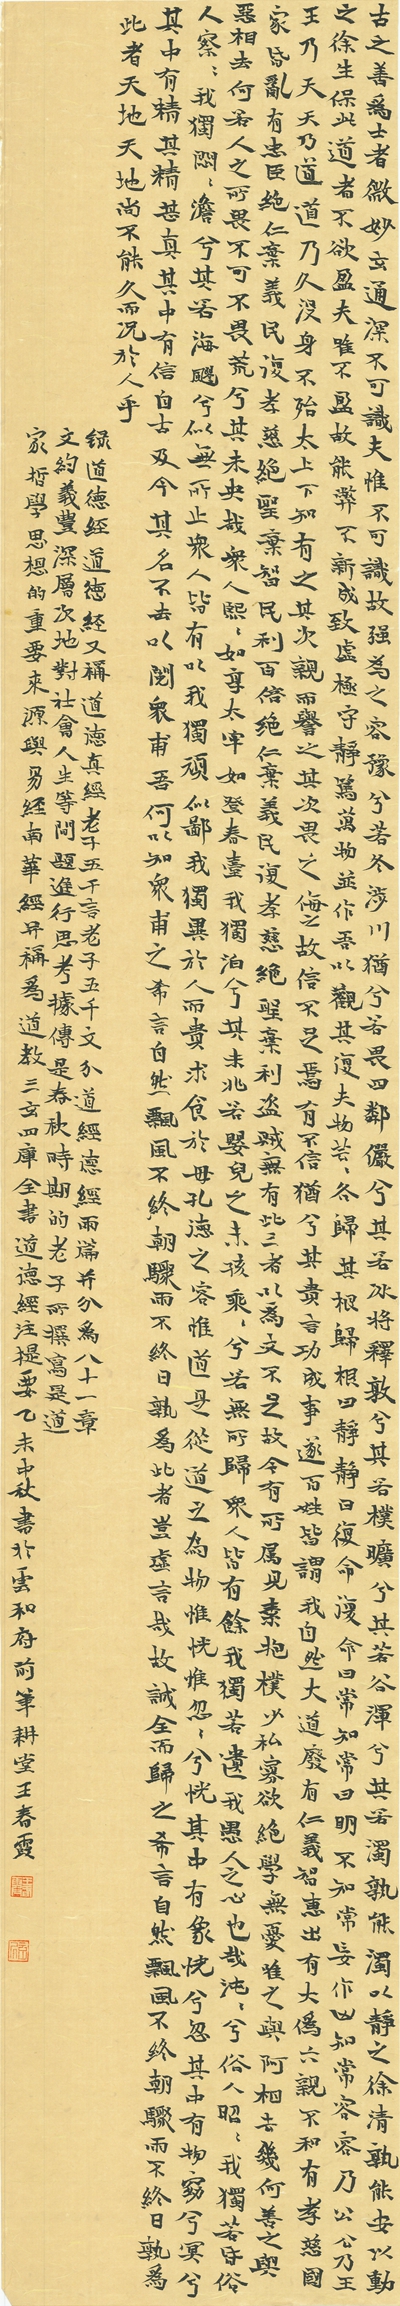 古之善為士者微妙玄通深不可識夫惟不可識故强為之容豫兮若冬涉川猶兮若畏四鄰儼兮其若冰將釋敦兮其若樸曠兮其若谷渾兮其若濁孰能濁以靜之徐清孰能安以動
之徐生保此道者不欲盈夫唯不盈故能弊不新成致虛極守靜篤萬物並作吾以觀其復夫物芸〻各歸其根歸根曰靜靜曰復命復命曰常知常曰明不知常妄作凶知常容容乃公公乃王
王乃天天乃道道乃久沒身不殆太上下知有之其次親而譽之其次畏之侮之故信不足焉有不信猶兮其貴言功成事遂百姓皆謂我自然大道廢有仁義智惠出有大偽六親不和有孝慈國
家昏亂有忠臣絕仁棄義民復孝慈絕聖棄智民利百倍絕仁棄義民復孝慈絕聖棄利盜賊無有此三者以為文不足故令有所属見素抱樸少私寡欲絕學無憂唯之與阿相去幾何善之與
惡相去何若人之所畏不可不畏荒兮其未央哉衆人熙〻如享太牢如登春臺我獨泊兮其未兆若嬰兒之未孩乘〻兮若無所歸衆人皆有餘我獨若遺我愚人之心也哉沌〻兮俗人昭〻我獨若昏俗
人察〻我獨悶〻澹兮其若海飂兮似無所止衆人皆有以我獨頑似鄙我獨異於人而貴求食於母孔德之容惟道是從道之為物惟恍惟忽〻兮恍其中有象恍兮忽其中有物窈兮冥兮
其中有精其精甚真其中有信自古及今其名不去以閱衆甫吾何以知衆甫之希言自然飄風不終朝驟雨不終日孰為此者豈虛言哉故誠全而歸之希言自然飄風不終朝驟雨不終日孰為
此者天地天地尚不能久而況於人乎
錄道德經道德經又稱道德真經老子五千言老子五千文分道經德經兩篇并分為八十一章
文約義豐深層次地對社會人生等問題進行思考據傳是春秋時期的老子所撰寫是道
家哲學思想的重要來源與易經南華經并稱為道教三玄四庫全書道德經注提要乙未中秋書於雲和府前筆耕堂王春霞